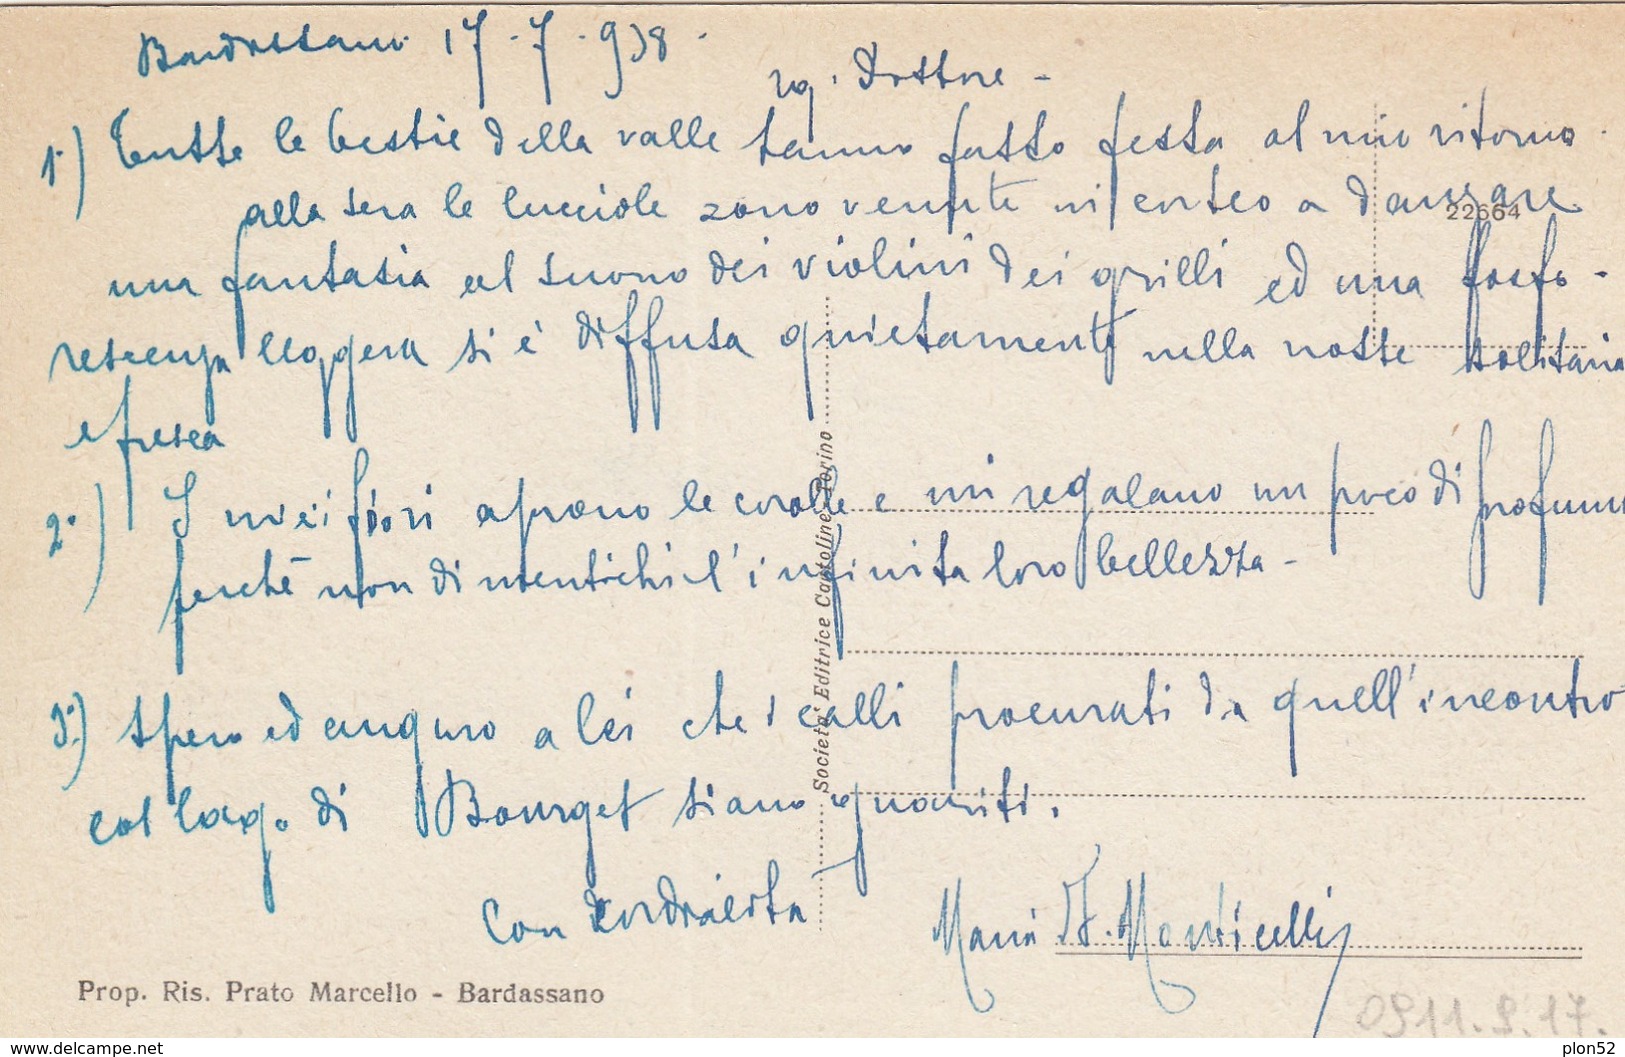 Bardassano 17.7.938.
Eg. Dottore -
1°) Tutte le bestie della valle hanno fatto festa al mio ritorno.
alla sera le lucciole sono venute in corteo a danzare
22664
una fantasia al suono dei violini dei grilli ed una fosfo-
rescenza leggera si è diffusa quietamente nella notte solitaria
e fresca
2°) I miei fiori aprono le corolle e mi regalano un poco di profumo
perchè non dimentichi l'infinita loro bellezza -
3°) Spero ed auguro a lei che i calli procurati da quell'incontro
col lago di Bourget siano guariti.
Con cordialità
Maria Monticelli
Società Editrice Cartoline - Torino
Prop. Ris. Prato Marcello - Bardassano
0911.9.17.
https://www.delcampe.net
plon52